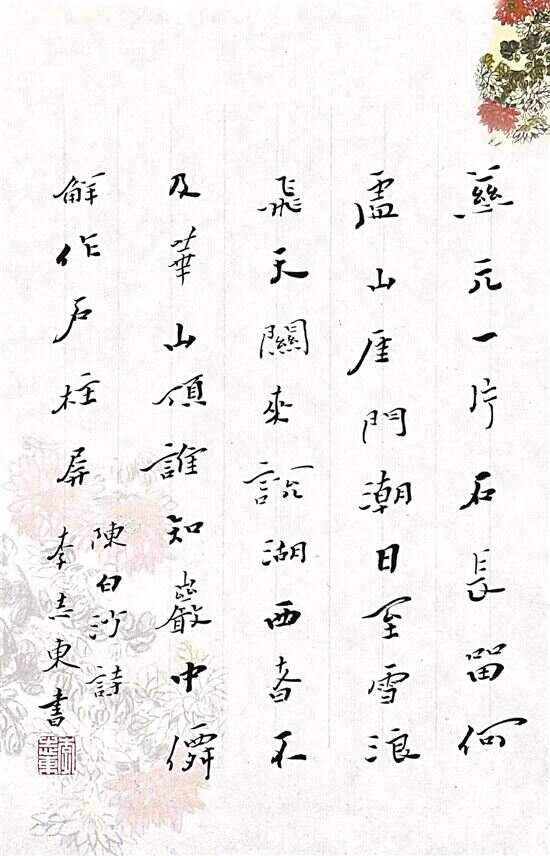 慈元一片石長留何
盧山厓門潮日至雪浪
飛天關來說湖西者不
及華山頂誰知巖中僊
解作石柱屏
陳白沙詩
李志東書